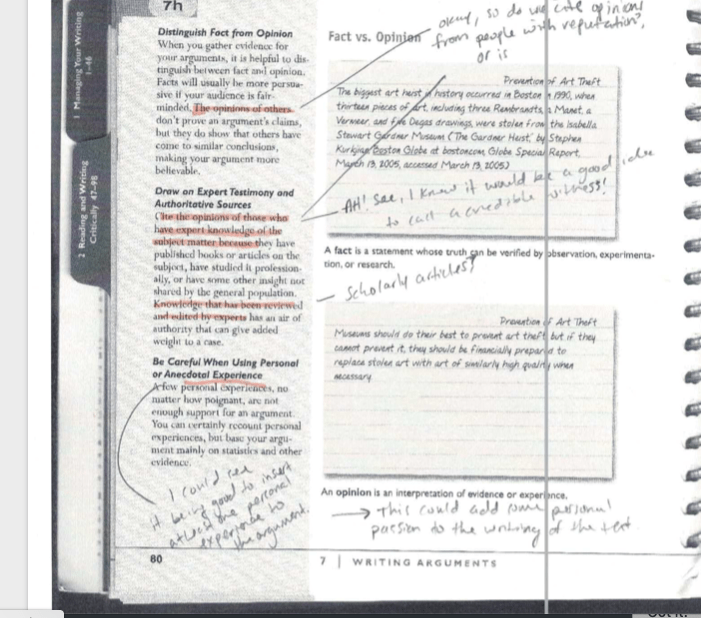 7h
1 Managing Your Writing
1–46
2 Reading and Writing
Critically 47–98
Distinguish Fact from Opinion
When you gather evidence for
your arguments, it is helpful to dis-
tinguish between fact and opinion.
Facts will usually be more persua-
sive if your audience is fair-
minded. The opinions of others
don't prove an argument's claims,
but they do show that others have
come to similar conclusions,
making your argument more
believable.
Draw on Expert Testimony and
Authoritative Sources
Cite the opinions of those who
have expert knowledge of the
subject matter because they have
published books or articles on the
subject, have studied it profession-
ally, or have some other insight not
shared by the general population.
Knowledge that has been reviewed
and edited by experts has an air of
authority that can give added
weight to a case.
Be Careful When Using Personal
or Anecdotal Experience
A few personal experiences, no
matter how poignant, are not
enough support for an argument.
You can certainly recount personal
experiences, but base your argu-
ment mainly on statistics and other
evidence.
I could see
it being good to insert
at least one personal
experience to
the argument.
80
okay, so do we cite opinions
from people with reputation?
or is
Fact vs. Opinion
Prevention of Art Theft
The biggest art heist in history occurred in Boston in 1990, when
thirteen pieces of art, including three Rembrandts, a Manet, a
Vermeer, and five Degas drawings, were stolen from the Isabella
Stewart Gardner Museum ("The Gardner Heist," by Stephen
Kurkjian, Boston Globe at bostoncom, Globe Special Report,
March 13, 2005, accessed March 13, 2005)
AH! See, I knew it would be a good idea
to call a credible witness!
A fact is a statement whose truth can be verified by observation, experimenta-
tion, or research.
Scholarly articles?
Prevention of Art Theft
Museums should do their best to prevent art theft but if they
cannot prevent it, they should be financially prepared to
replace stolen art with art of similarly high quality when
necessary
An opinion is an interpretation of evidence or experience.
This could add some personal
passion to the writing of the text
7 | WRITING ARGUMENTS